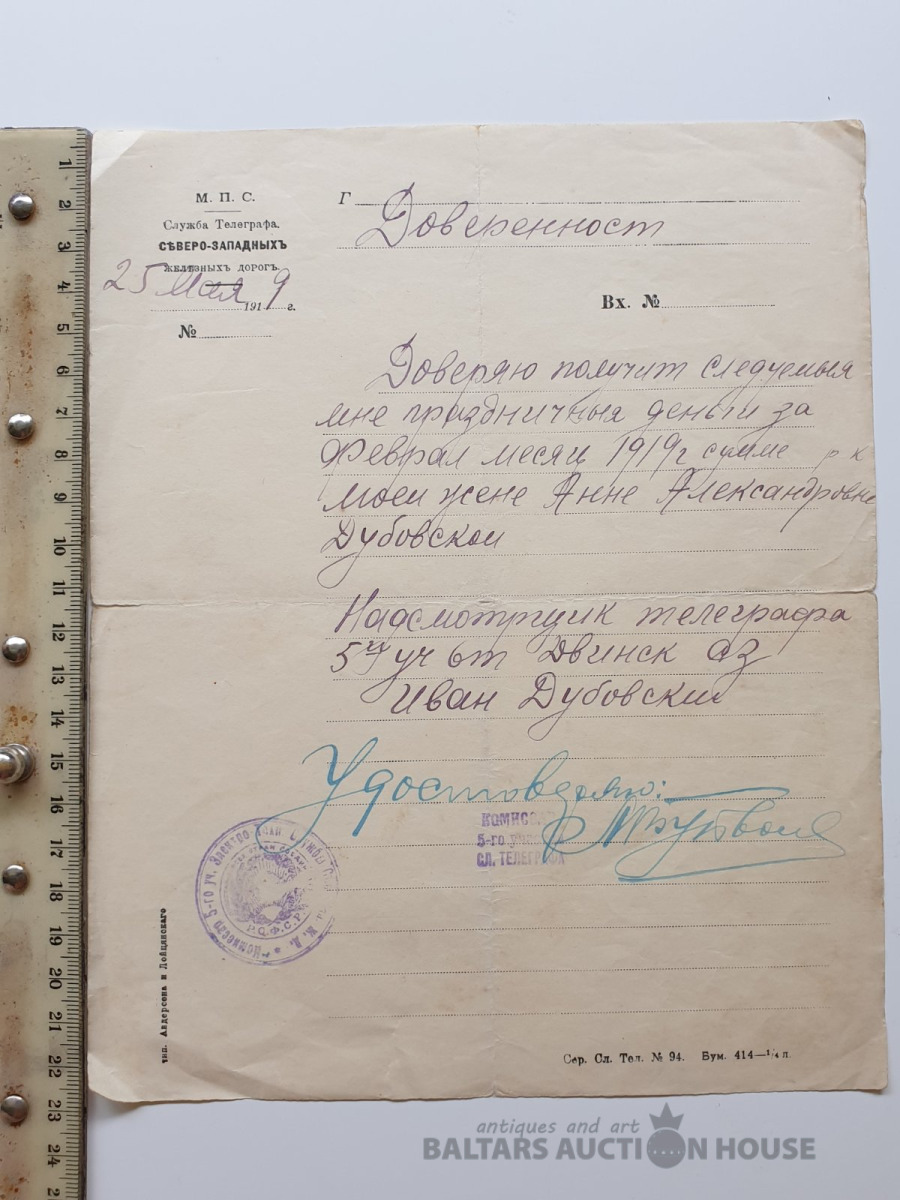 М. П. С.
Служба Телеграфа
СѢВЕРО-ЗАПАДНЫХЪ
ЖЕЛѢЗНЫХЪ ДОРОГЪ.
25 Мая 1919 г.
№
Г
Доверенност
Вх. №
Доверяю получит следуемыя
мне праздничныя деньги за
Феврал месяц 1919 г сумме р к
моеи жене Анне Александровне
Дубовскои
Надсмотрщик телеграфа
5 уч Двинск СЗ
Иван Дубовскии
Удостоверяю:
КОМИСС
5-го
СЛ. ТЕЛЕГРАФА
Комиссар 5-го уч. Электро Ж. Д.
Р.С.Ф.С.Р.
тип. Андерсона и Лойцянскаго
Сер. Сл. Тел. № 94. Бум. 414—¼ л.
antiques and art
BALTARS AUCTION HOUSE
1
2
3
4
5
6
7
8
9
10
11
12
13
14
15
16
17
18
19
20
21
22
23
24